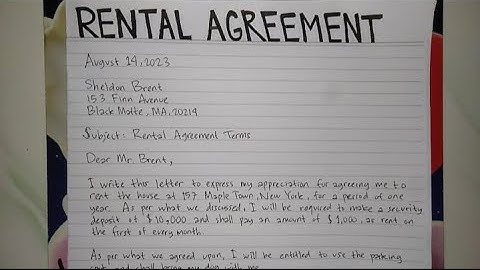 RENTAL AGREEMENT
August 14, 2023
Sheldon Brent
153 Finn Avenue
Black Matte, MA, 20219
Subject: Rental Agreement Terms
Dear Mr. Brent,
I write this letter to express my appreciation for agreeing me to
rent the house at 157 Maple Town, New York, for a period of one
year. As per what we discussed, I will be required to make a security
deposit of $10,000 and shall pay an amount of $1,000, as rent on
the first of every month.
As per what we agreed upon, I will be entitled to use the parking
and shall bring my dog with me